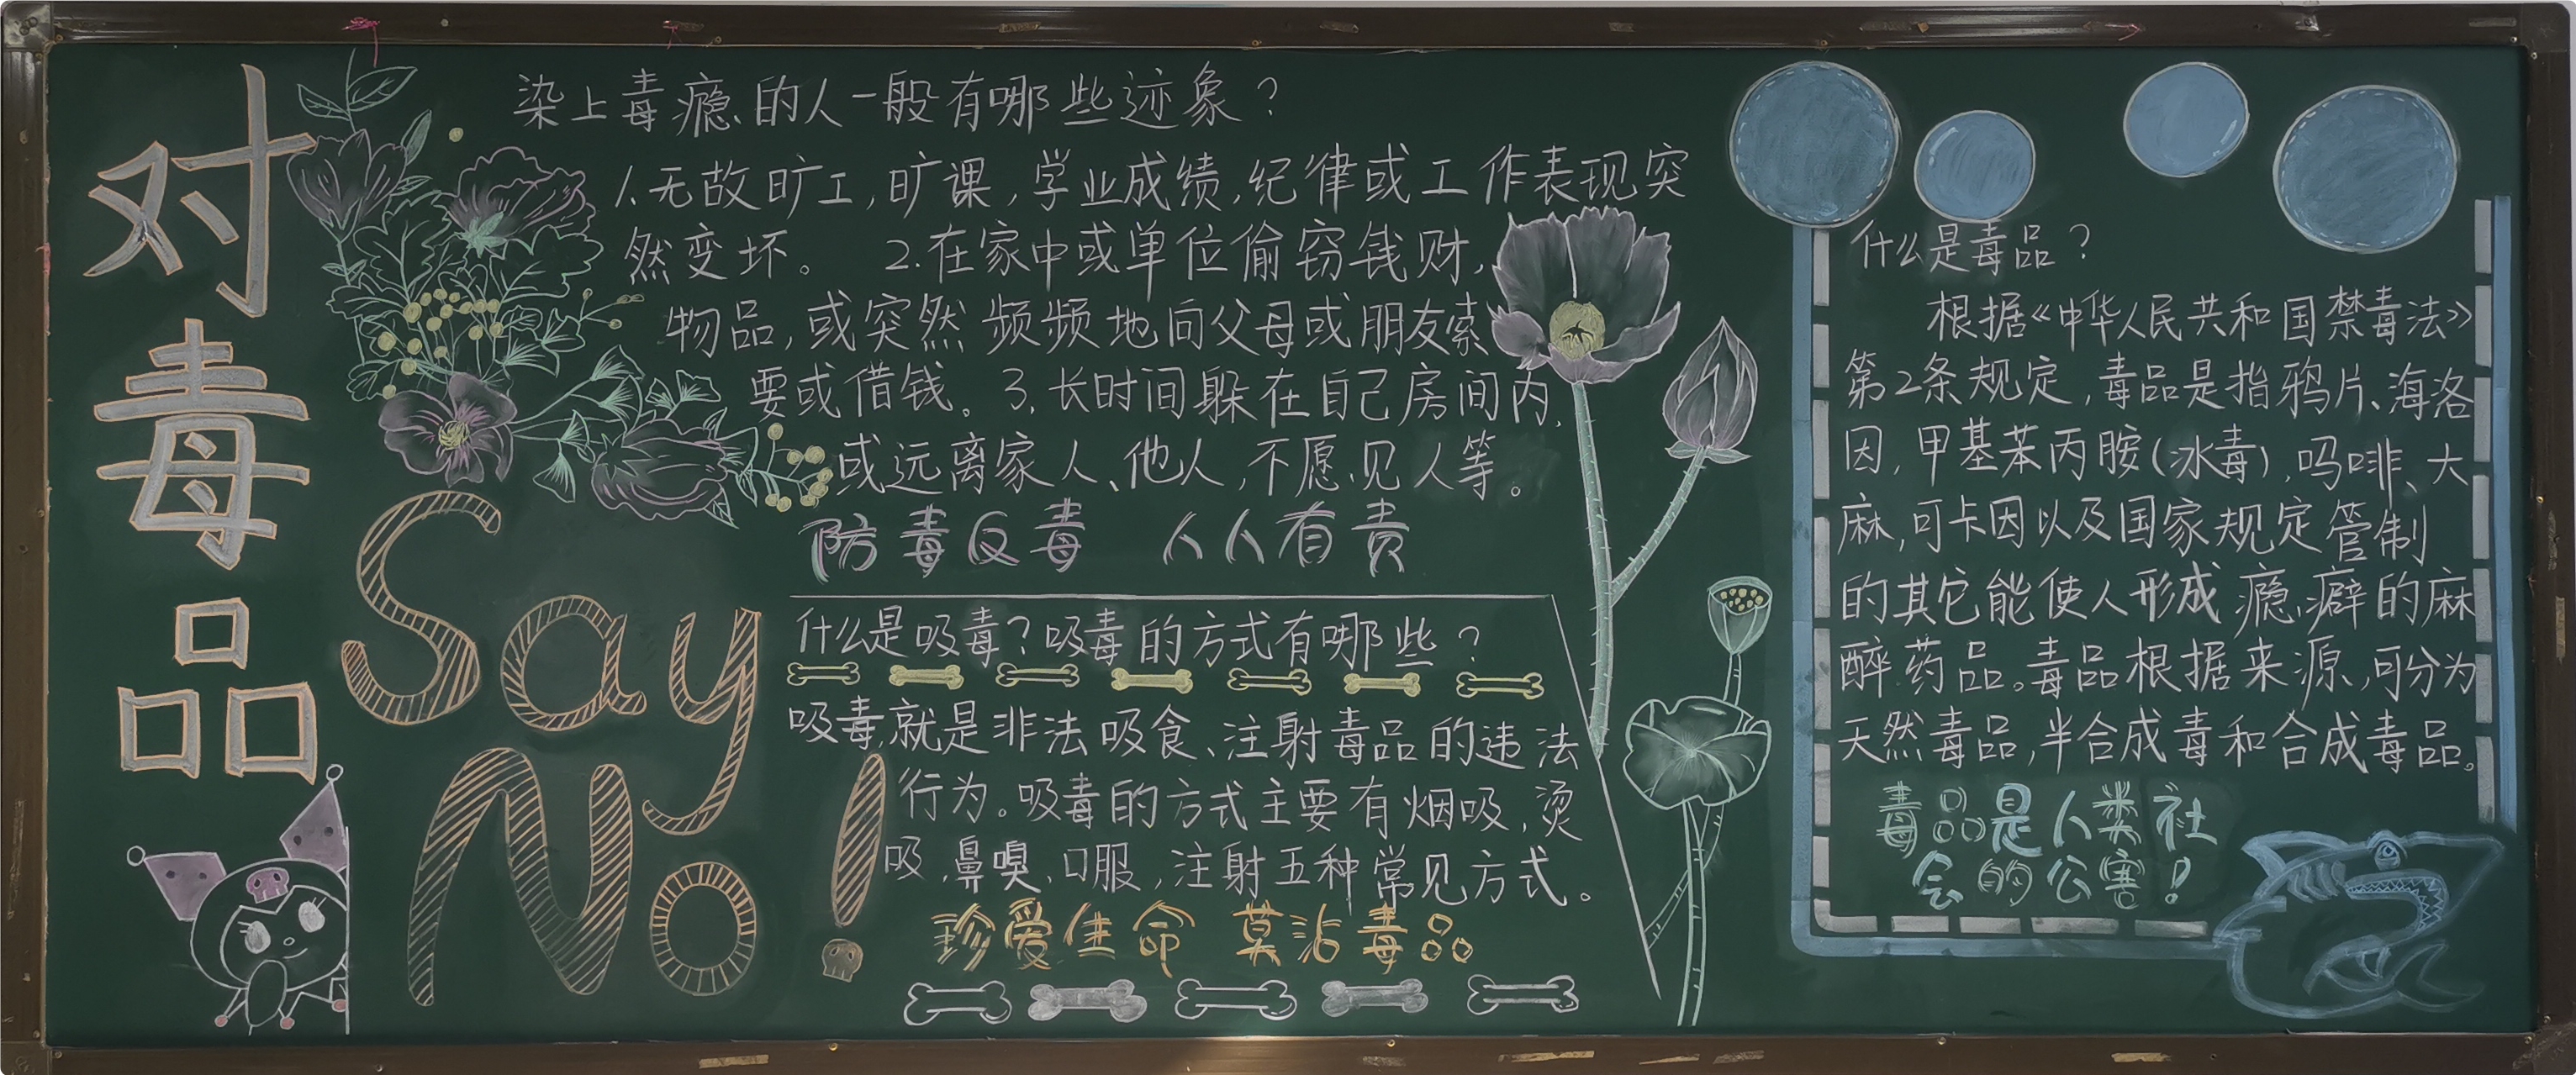 对毒品
Say
No!
染上毒瘾的人一般有哪些迹象？
1.无故旷工,旷课,学业成绩,纪律或工作表现突
然变坏。 2.在家中或单位偷窃钱财,
物品,或突然频频地向父母或朋友索
要或借钱。3.长时间躲在自己房间内,
或远离家人、他人,不愿见人等。
防毒反毒 人人有责
什么是吸毒？吸毒的方式有哪些？
吸毒就是非法吸食、注射毒品的违法
行为。吸毒的方式主要有烟吸,烫
吸,鼻嗅,口服,注射五种常见方式。
珍爱生命 莫沾毒品
什么是毒品？
根据《中华人民共和国禁毒法》
第2条规定,毒品是指鸦片、海洛
因,甲基苯丙胺(冰毒),吗啡、大
麻,可卡因以及国家规定管制
的其它能使人形成瘾癖的麻
醉药品。毒品根据来源,可分为
天然毒品,半合成毒和合成毒品。
毒品是人类社
会的公害！